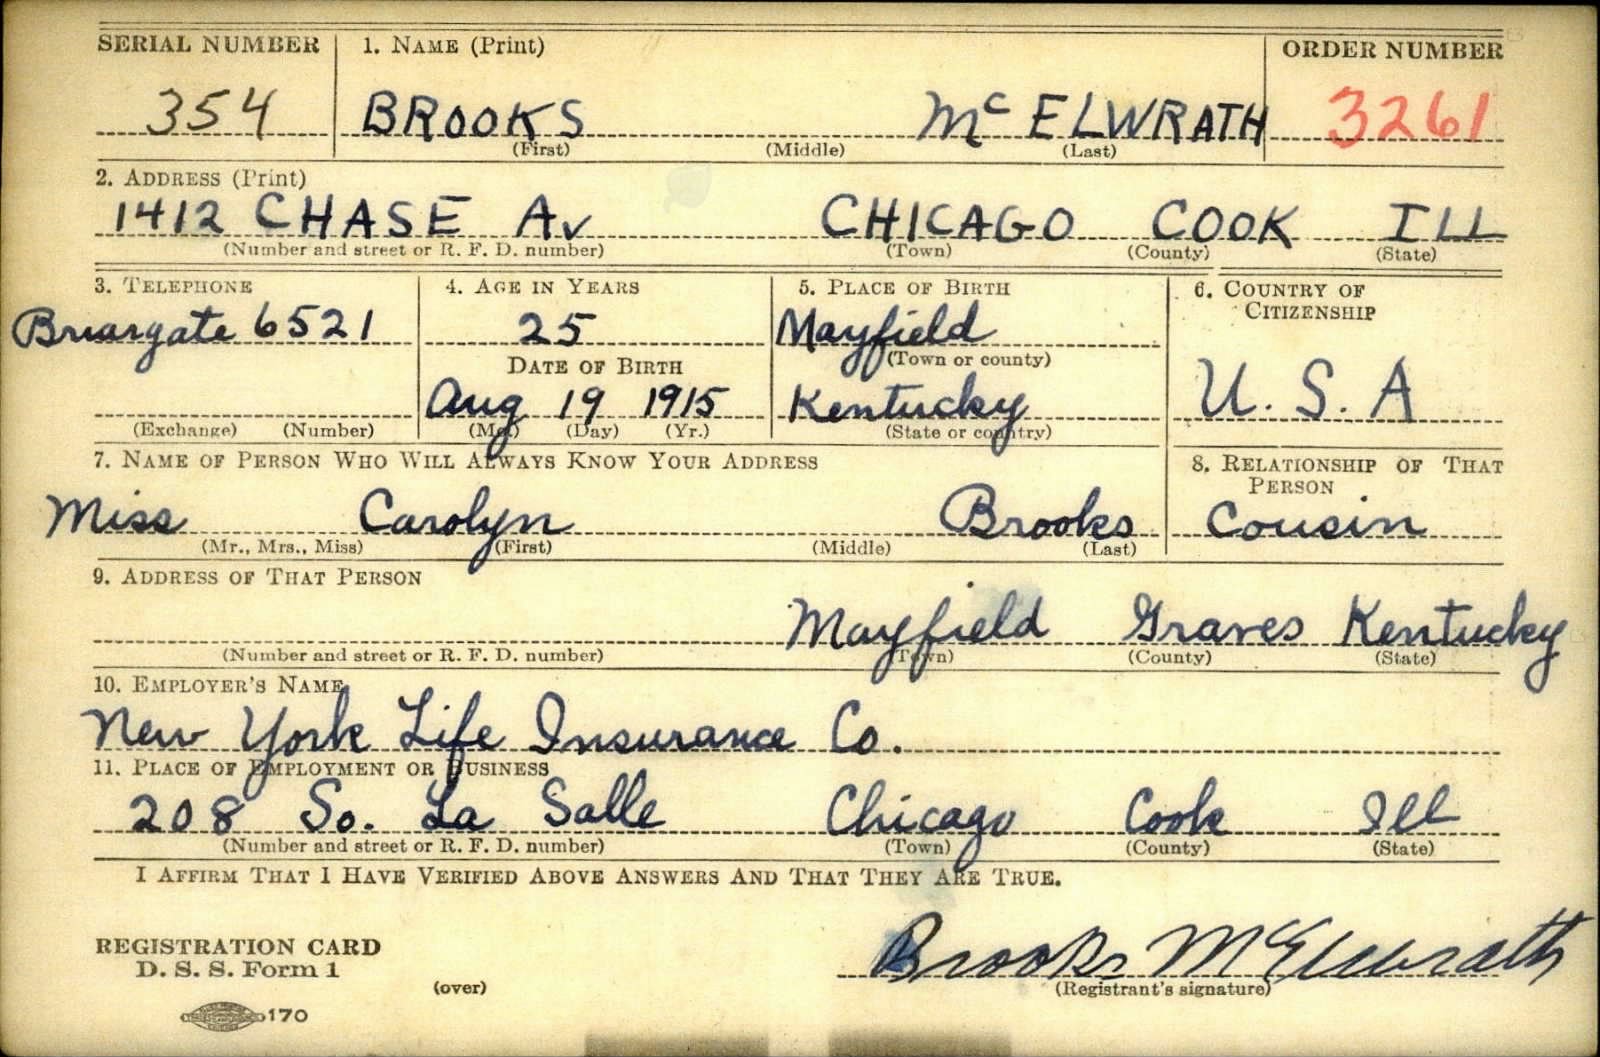 SERIAL NUMBER 1. NAME (Print) ORDER NUMBER
354 BROOKS Mc ELWRATH 3261
(First) (Middle) (Last)
2. ADDRESS (Print)
1412 CHASE Av CHICAGO COOK ILL
(Number and street or R. F. D. number) (Town) (County) (State)
3. TELEPHONE 4. AGE IN YEARS 5. PLACE OF BIRTH 6. COUNTRY OF
CITIZENSHIP
Briargate 6521 25 Mayfield
(Town or county)
DATE OF BIRTH
Aug 19 1915 Kentucky U. S. A
(Exchange) (Number) (Mo.) (Day) (Yr.) (State or country)
7. NAME OF PERSON WHO WILL ALWAYS KNOW YOUR ADDRESS 8. RELATIONSHIP OF THAT
PERSON
Miss Carolyn Brooks Cousin
(Mr., Mrs., Miss) (First) (Middle) (Last)
9. ADDRESS OF THAT PERSON
Mayfield Graves Kentucky
(Number and street or R. F. D. number) (Town) (County) (State)
10. EMPLOYER'S NAME
New York Life Insurance Co.
11. PLACE OF EMPLOYMENT OR BUSINESS
208 So. La Salle Chicago Cook Ill
(Number and street or R. F. D. number) (Town) (County) (State)
I AFFIRM THAT I HAVE VERIFIED ABOVE ANSWERS AND THAT THEY ARE TRUE.
Brooks McElwrath
REGISTRATION CARD
D. S. S. Form 1
(over) (Registrant's signature)
170